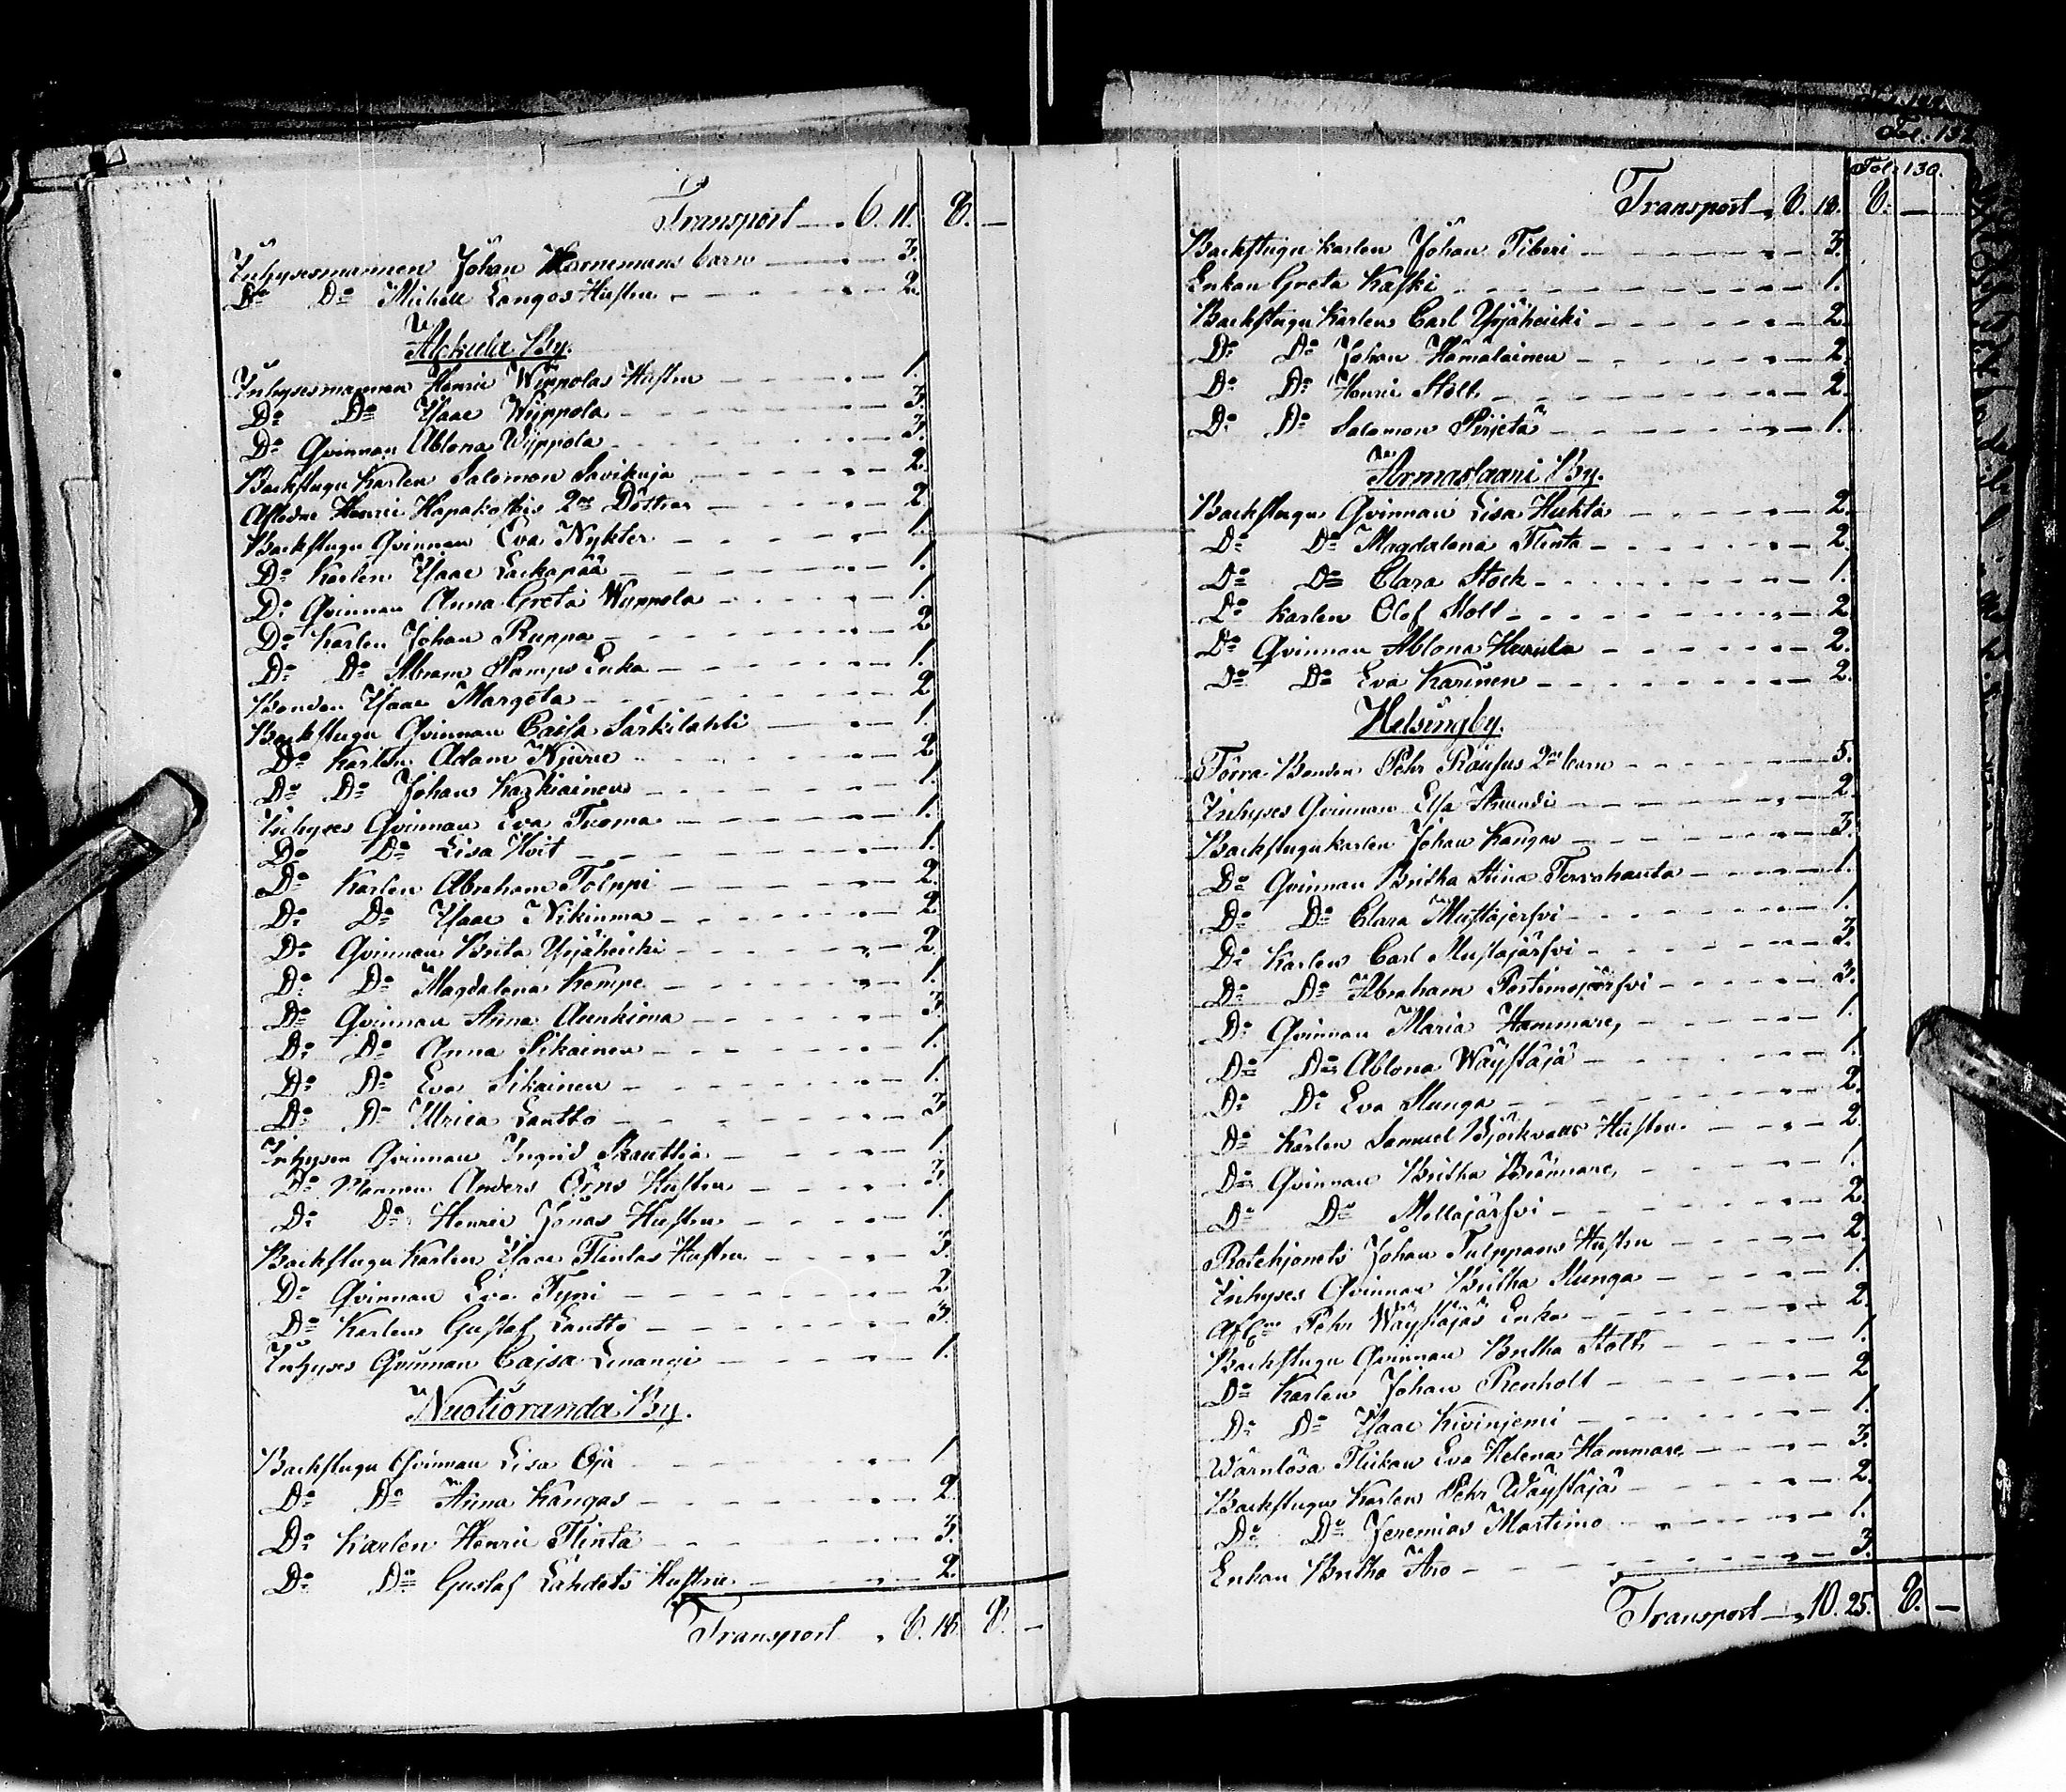 Transport — . 6. 11. 8. —
Inhysesmannen Johan Hornemans barn — 3.
Do Do Michell Langos Hustru — 2.
Alckula By.
Inhysesmannen Henric Wippolas Hustru — 1.
Do Do Isaac Wippola — 3.
Do Qvinnan Ablona Wippola — 3.
Backstugu Karlen Salomon Savikuja — 2.
Afledne Henric Hapakoskis 2ne Döttrar — 2
Backstugu Qvinnan Eva Nykter — 1.
Do Karlen Isaac Lackapää — 1.
Do Qvinnan Anna Greta Wippola — 1.
Do Karlen Johan Ruppa — 2
Do Do Abram Stamps Enka — 1.
Bonden Isaac Margeta — 2
Backstugu Qvinnan Caisa Särkilahti — 1.
Do Karlen Adam Niuru — 2
Do Do Johan Kazkiainen — 1.
Inhyses Qvinnan Eva Tuoma — 1.
Do Do Lisa Hvit — 1.
Do Karlen Abraham Tolppi — 2.
Do Do Isaac Nikinma — 2.
Do Qvinnan Brita Yrjäheicki — 2.
Do Do Magdalena Kempe — 1.
Do Qvinnan Anna Aunkima — 3.
Do Do Anna Sikainen — 1.
Do Do Eva Sikainen — 1.
Do Do Ulrica Lautto — 3
Inhyses Qvinnan Ingrid Skauttia — 1.
Do Mannen Anders Örns Hustru — 3.
Do Do Henric Jonas Hustru — 1.
Backstugu Karlen Isaac Flintas Hustru — 3.
Do Qvinnan Eva Fyni — 2
Do Karlen Gustaf Lautto — 3.
Inhyses Qvinnan Cajsa Linangi — 1.
Nuotioranda By.
Backstugu Qvinnan Lisa Oja — 1
Do Do Anna Kangas — 2.
Do Karlen Henric Flinta — 3.
Do Do Gustaf Lahdets Hustru — 2.
Transport . 8. 18. 8. —
Fol. 132
Fol. 130.
Transport . 8. 18. 8. —
Backstugu karlen Johan Tiberi — 3.
Enkan Greta Kaski — 1.
Backstugu Karlen Carl Yrjäheicki — 2.
Do Do Johan Hämäläinen — 2.
Do Do Henric Stolt — 2.
Do Do Salomon Pirjetä — 1.
Armaslaani By.
Backstugu Qvinnan Lisa Huhta — 2.
Do Do Magdalena Flinta — 2.
Do Do Clara Stock — 1.
Do Karlen Olof Stolt — 2.
Do Qvinnan Ablona — 2.
Do Do Eva Karinen — 2.
Helsingby.
Förra Bonden Pehr Raufus 2ne barn — 5.
Inhyses Qvinnan Elsa Strundi — 2
Backstugukarlen Johan Kangas — 3.
Do Qvinnan Britha Stina Tervahauta — 1.
Do Do Clara Mustajerfvi — 1.
Do Karlen Carl Mustajärfvi — 3.
Do Do Abraham Portimojärfvi — 3.
Do Qvinnan Maria Hammare, — 1.
Do Do Ablona Wäystäjä — 1.
Do Do Eva Slunga — 2.
Do Karlen Samuel Björkvalls Hustru — 2.
Do Qvinnan Britha Brännare, — 1.
Do Do Mellajärfvi — 2.
Rotehjonets Johan Tulppans Hustru — 2.
Inhyses Qvinnan Britha Slunga — 1.
Afl:ne Pehr Wäystäjäs Enka — 2.
Backstugu Qvinnan Britha Stolt — 1.
Do Karlen Johan Renholt — 2
Do Do Isaac Kivinjemi — 1.
Wärnlösa Flickan Eva Helena Hammare — 3.
Backstugu Karlen Pehr Wäystäjä — 2.
Do Do Jeremias Martimo — 1.
Enkan Britha Aro — 3.
Transport — 10. 25. 8. —